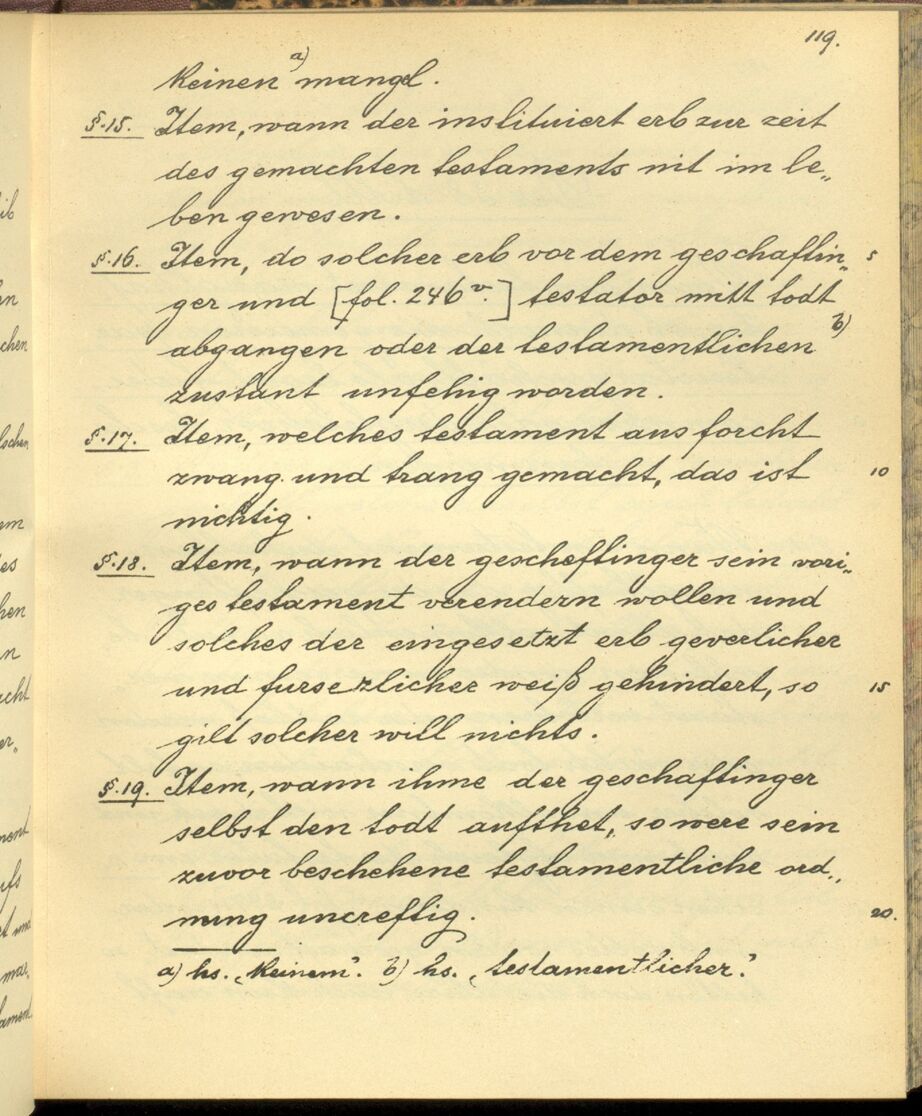 119.
keinen a) mangl.
§.15. Item, wann der instituiert erb zur zeit
des gemachten testaments nit im le„
ben gewesen.
§.16. Item, do solcher erb vor dem geschafftin„ 5
ger und [fol. 246v.] testator mitt todt
abgangen oder der testamentlichen b)
zustant unfehig worden.
§.17. Item, welches testament aus forcht
zwang und trang gemacht, das ist 10
nichtig.
§.18. Item, wann der gescheftinger sein vori„
ges testament verendern wollen und
solches der eingesetzt erb geverlicher
und fursezlicher weiß gehindert, so 15
gilt solcher will nichts.
§.19. Item, wann ihme der geschaftinger
selbst den todt aufthet, so were sein
zuvor beschehene testamentliche ord„
nung uncreftig. 20.
a) hs. „keinem". b) hs. „testamentlicher".